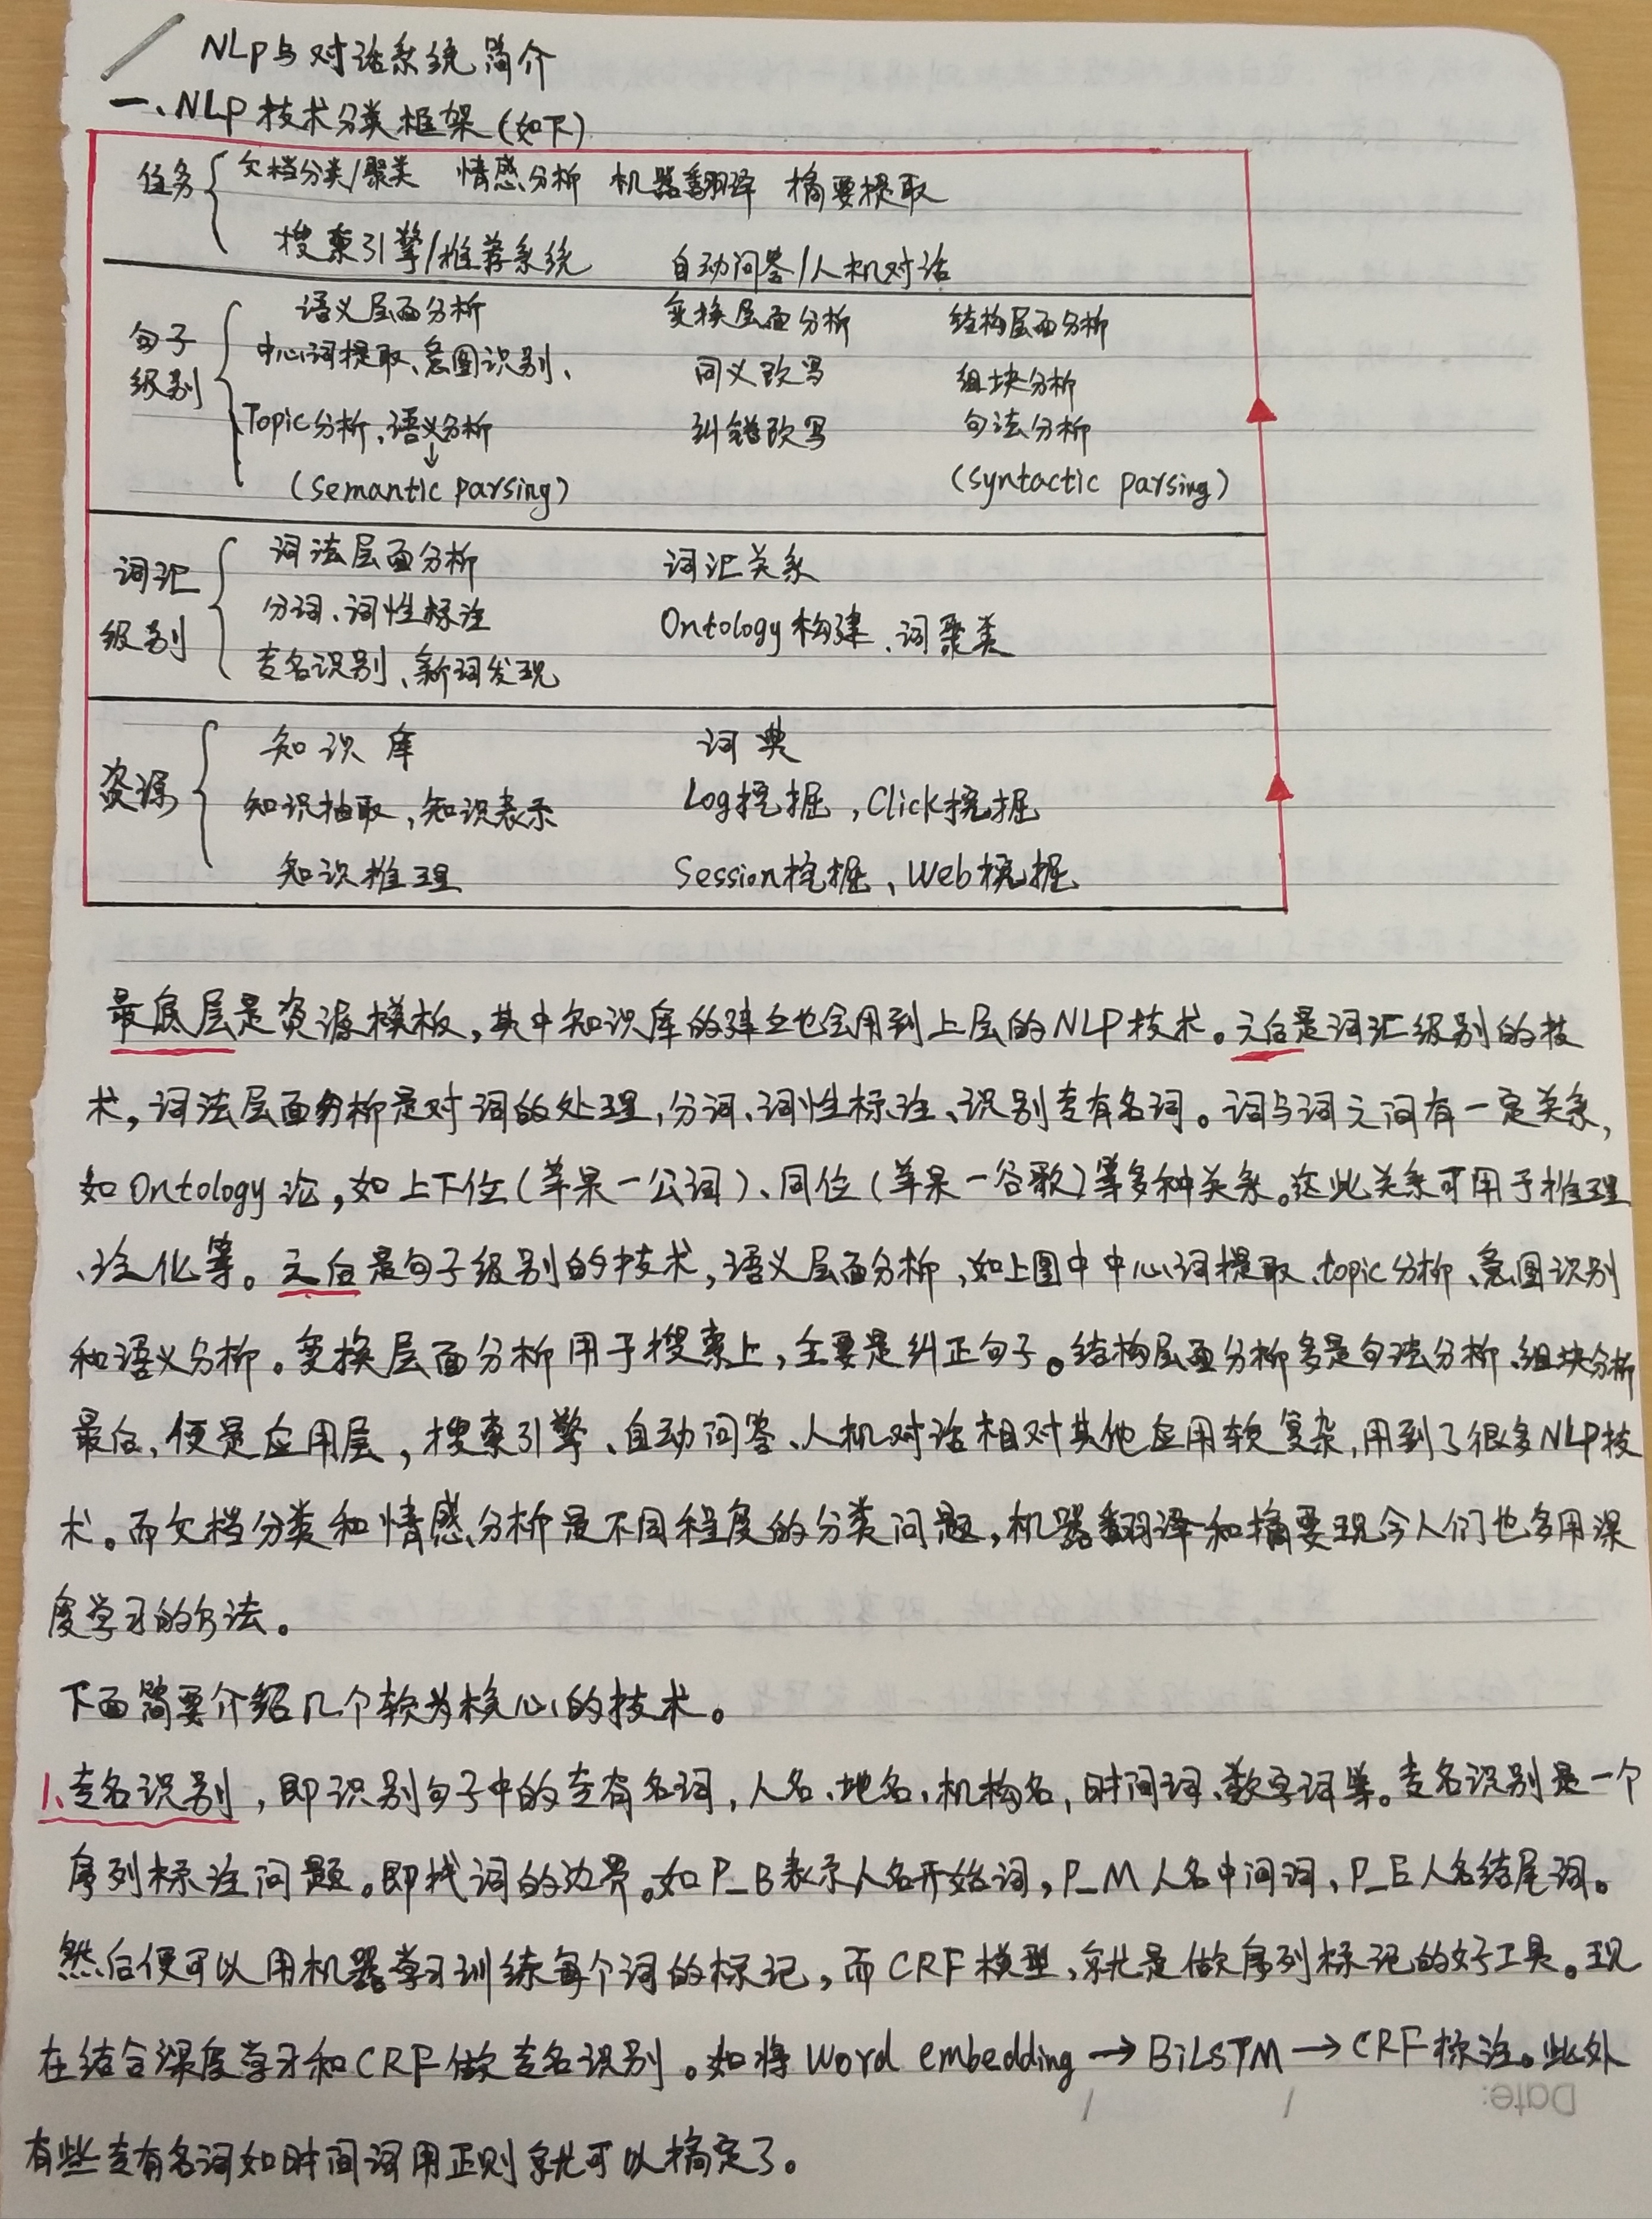 NLP与对话系统简介
一、NLP技术分类框架(如下)
任务 文档分类/聚类 情感分析 机器翻译 摘要提取
搜索引擎/推荐系统 自动问答/人机对话
句子级别 语义层面分析 变换层面分析 结构层面分析
中心词提取、意图识别、 同义改写 组块分析
Topic分析、语义分析 纠错改写 句法分析
↓
(Semantic parsing) (Syntactic parsing)
词汇级别 词法层面分析 词汇关系
分词、词性标注 Ontology构建、词聚类
专名识别、新词发现
资源 知识库 词典
知识抽取,知识表示 Log挖掘,Click挖掘
知识推理 Session挖掘、Web挖掘
最底层是资源模板,其中知识库的建立也会用到上层的NLP技术。之后是词汇级别的技
术,词法层面分析是对词的处理,分词、词性标注、识别专有名词。词与词之间有一定关系,
如Ontology论,如上下位(苹果-公词)、同位(苹果-谷歌)等多种关系。这些关系可用于推理
、泛化等。之后是句子级别的技术,语义层面分析,如上图中中心词提取、topic分析、意图识别
和语义分析。变换层面分析用于搜索上,主要是纠正句子。结构层面分析多是句法分析、组块分析
最后,便是应用层,搜索引擎、自动问答、人机对话相对其他应用较复杂,用到了很多NLP技
术。而文档分类和情感分析是不同程度的分类问题,机器翻译和摘要现今人们也多用深
度学习的方法。
下面简要介绍几个较为核心的技术。
1、专名识别,即识别句子中的专有名词,人名、地名、机构名,时间词、数字词等。专名识别是一个
序列标注问题。即找词的边界。如P_B表示人名开始词,P_M人名中间词,P_E人名结尾词。
然后便可以用机器学习训练每个词的标记,而CRF模型,就是做序列标记的好工具。现
在结合深度学习和CRF做专名识别。如将Word embedding→BiLSTM→CRF标注。此外
Date:
有些专有名词如时间词用正则就可以搞定了。